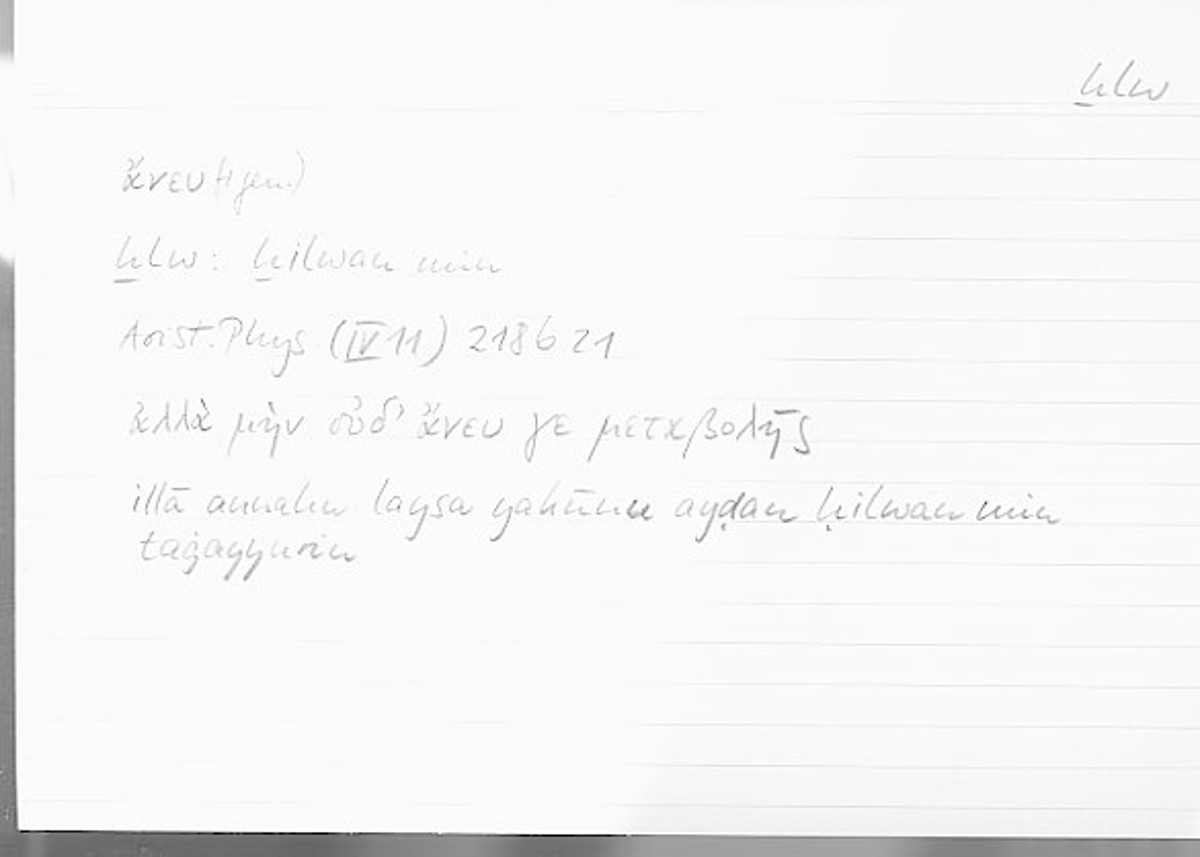 ḫlw
ἄνευ (+ gen.)
ḫlw: ḫilwan min
Arist. Phys (IV 11) 218b21
ἀλλὰ μὴν οὐδ' ἄνευ γε μεταβολῆς
illā annahu laysa yakūnu ayḍan ḫilwan min
taġayyurin